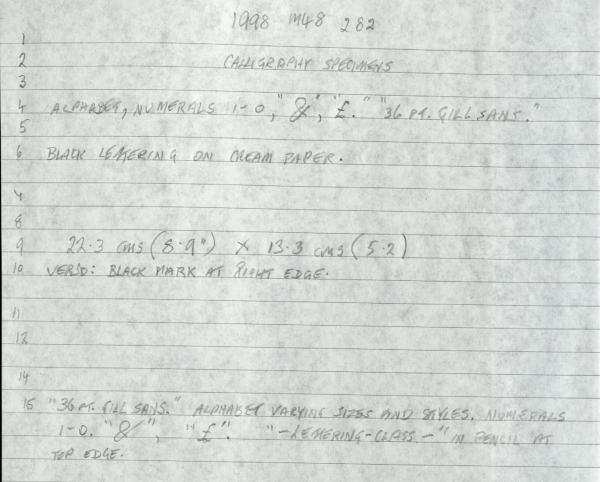 1998 M48 282
1
2 CALLIGRAPHY SPECIMENS
3
4 ALPHABET, NUMERALS 1-0, "&", "£." "36 PT. GILL SANS."
5
6 BLACK LETTERING ON CREAM PAPER.
7
8
9 22.3 cms (8.9") X 13.3 cms (5.2)
10 VERSO: BLACK MARK AT RIGHT EDGE.
11
12
14
15 "36 PT. GILL SANS." ALPHABET VARYING SIZES AND STYLES. NUMERALS
1-0. "&", "£". "-LETTERING-CLASS-" IN PENCIL AT
TOP EDGE.